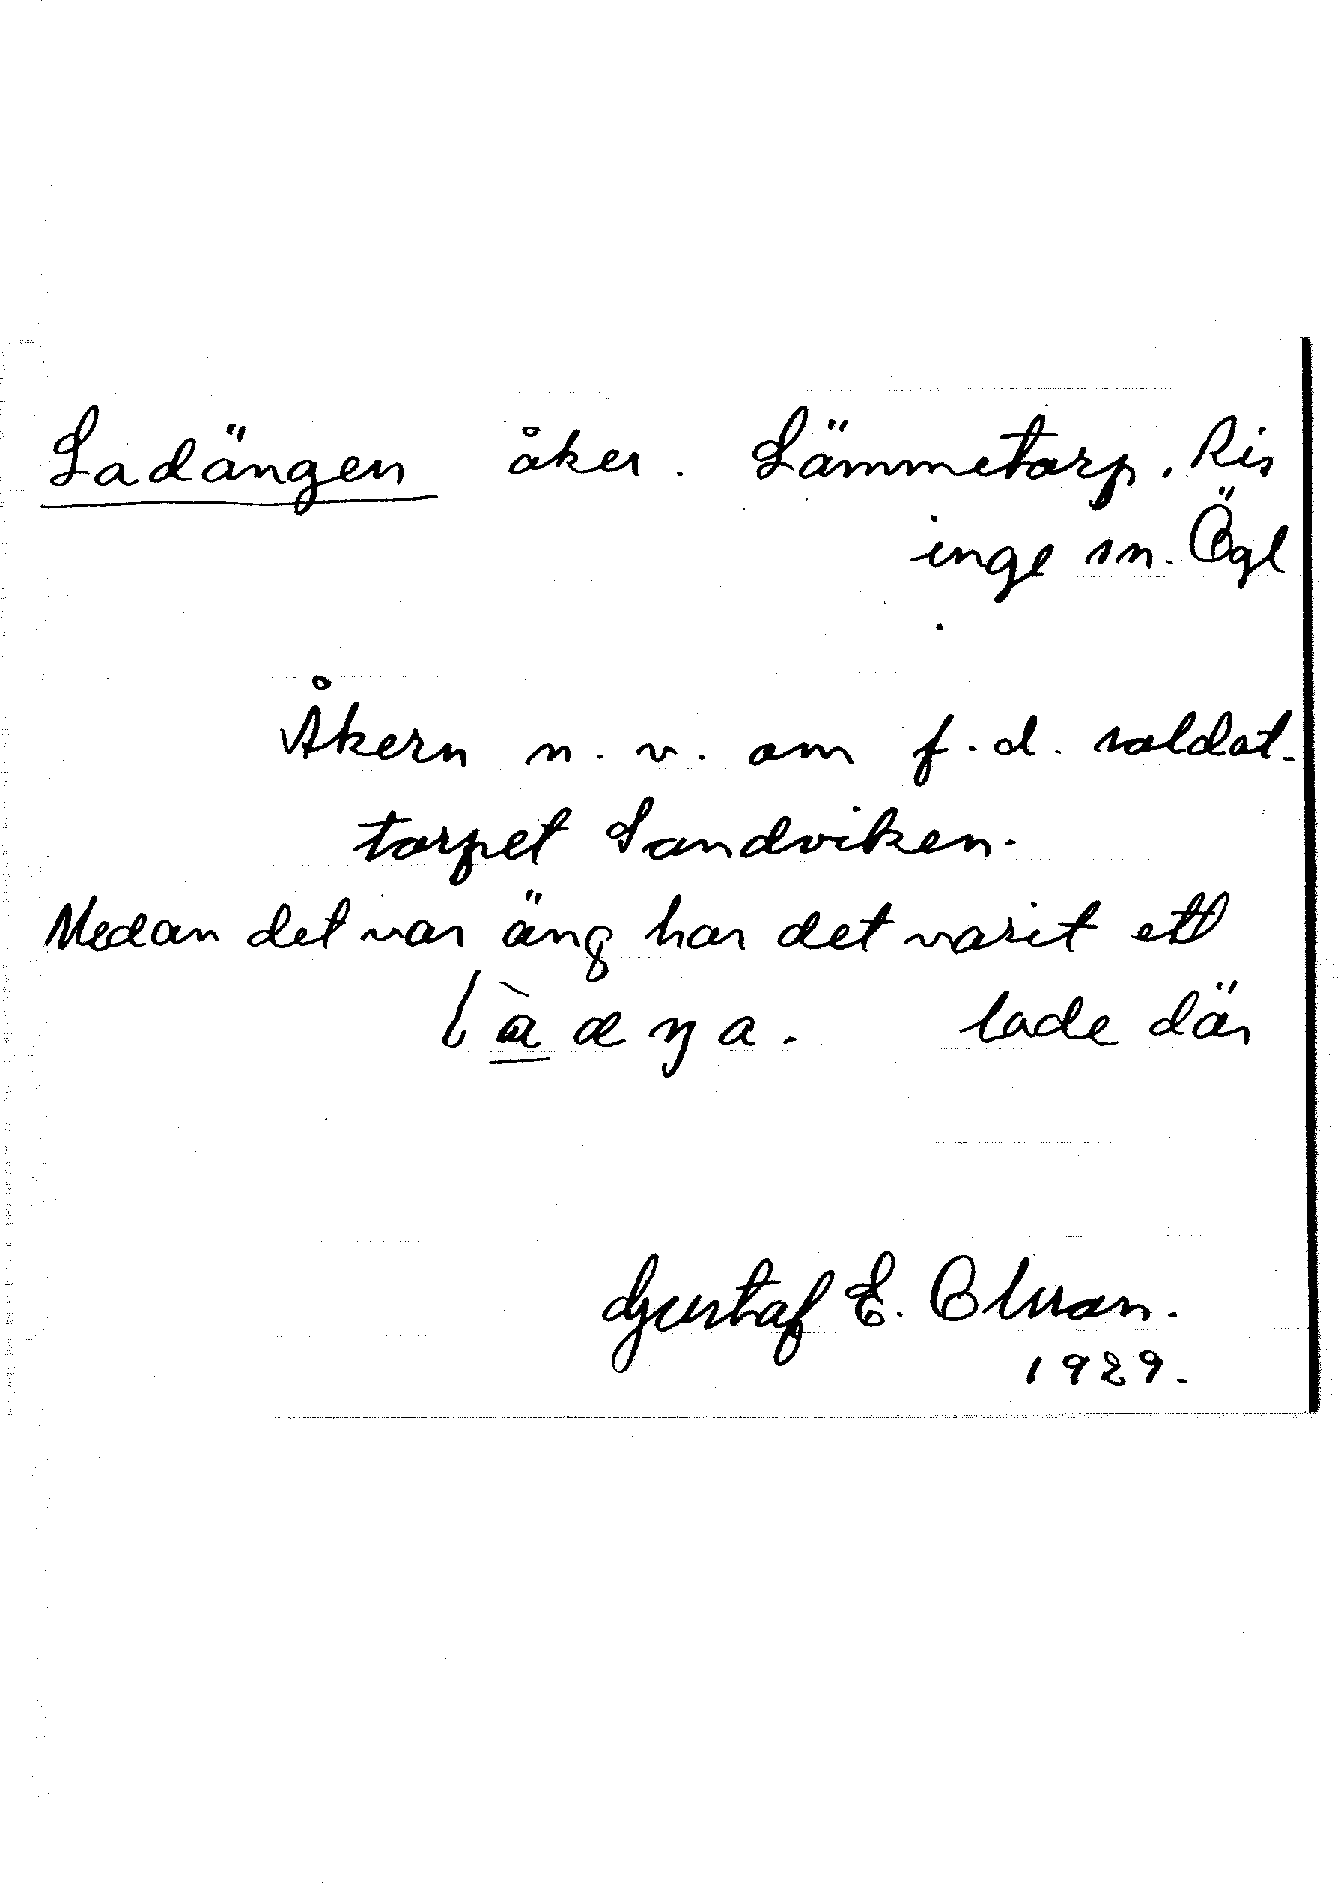 Ladängen åker. Lämmetorp, Ris
inge sn. Ögl
Åkern n. v. om f. d. soldat-
torpet Sandviken.
Medan det var äng har det varit ett
làæŋa. lade där
Gustaf E. Olsson.
1929.